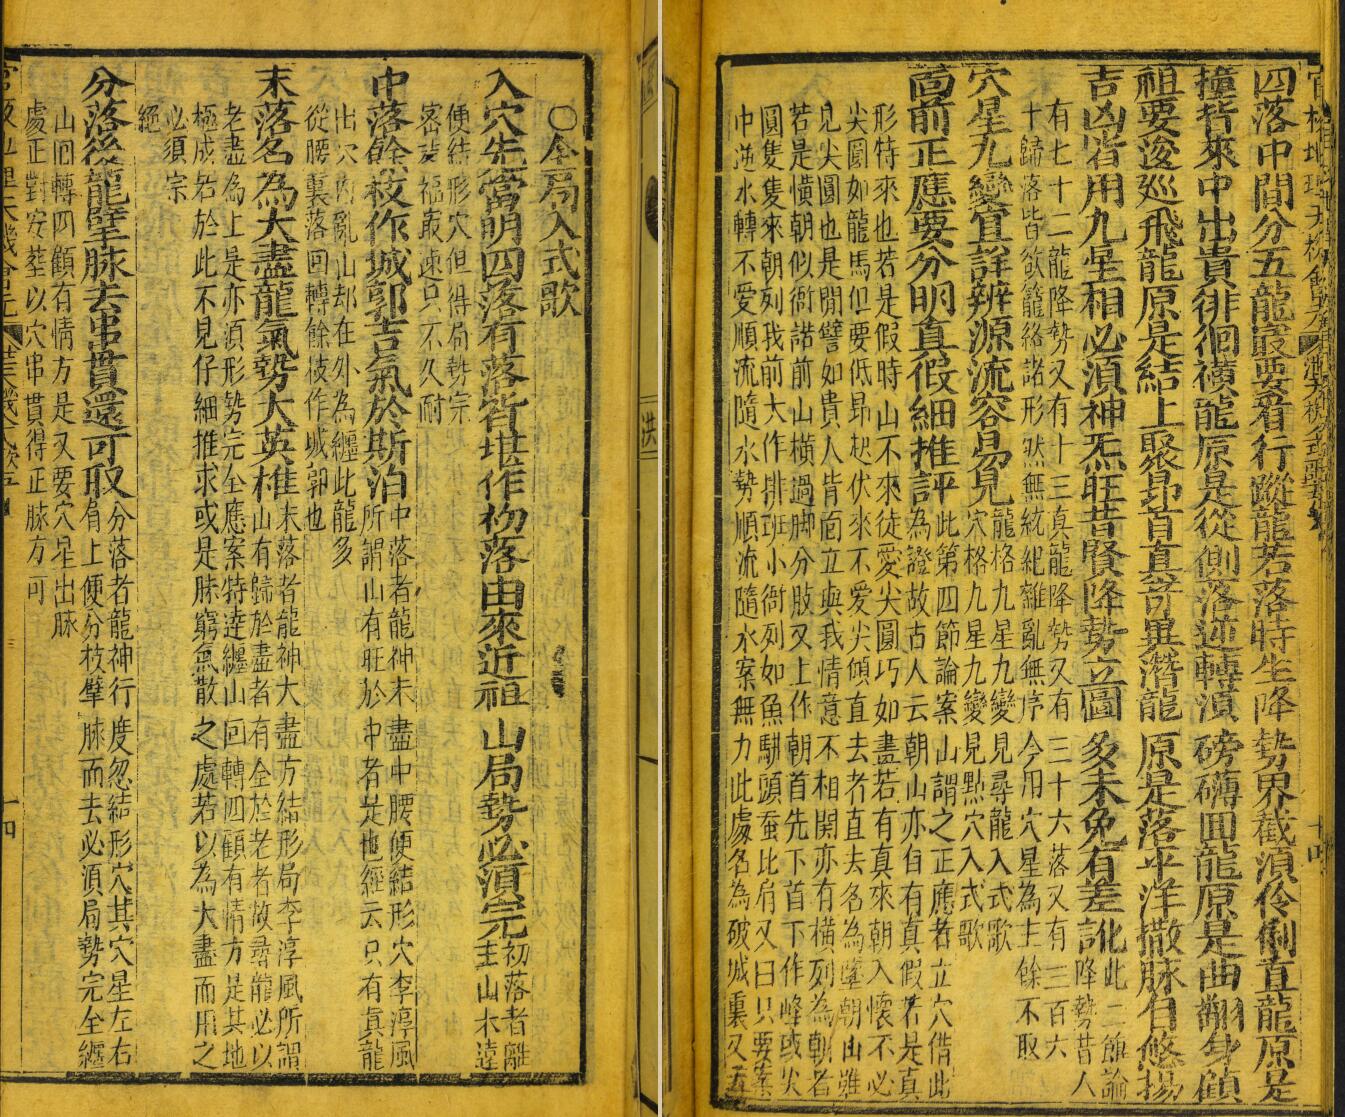 四落中間分五龍叢要看行蹤龍若落時生降勢界截須伶俐直龍原是
撞背來中出貴徘徊橫龍原是從側落逆轉須磅礴回龍原是曲翻身顧
祖要逡巡飛龍原是結上聚昂首直奇異潛龍原是落平洋撒脉自悠揚
吉凶皆用九星相必須神炁旺昔賢降勢立圖多未免有差訛此二節論降勢昔人
有七十二龍降勢又有十三真龍降勢又有三十六落又有三百六
十歸落皆欲籠絡諸形然無統紀雜亂無序今用穴星為主餘不取
穴星九變宜詳辨源流容易見龍格九星九變見尋龍入式歌穴格九星九變見點穴入式歌
面前正應要分明真假細推評此第四節論案山謂之正應者立穴借此為證故古人云朝山亦自有真假若是真
形特來也若是假時山不來徒愛尖圓巧如畫若有真來朝入懷不必
尖圓如龍馬但要低昂起伏來不愛尖傾直去者直去名為墜朝山雖
見尖圓也是閒譬如貴人背面立與我情意不相關亦有橫列為朝者
若是橫朝似衙諾前山橫過脚分肢又上作朝首先下首下作峰或尖
圓隻隻來朝列我前大作排班小衙列如魚駢頭蚕比肩又曰只要案
中逆水轉不愛順流隨水勢順流隨水案無力此處名為破城裏又五
○全局入式歌
入穴先當明四落有落皆堪作初落由來近祖山局勢必須完初落者離主山未遠
便結形穴但得局勢完
密發福最速只不久耐
中落餘枝作城郭吉氣於斯泊中落者龍神未盡中腰便結形穴李淳風所謂山有旺於中者是也經云只有真龍
出穴內亂山却在外為纏此龍多
從腰裏落回轉餘枝作城郭也
末落名為大盡龍氣勢大英雄末落者龍神大盡方結形局李淳風所謂山有歸於盡者有全於老者故尋龍必以
老盡為上是亦須形勢完全應案特達纏山回轉四顧有情方是其地
極成若於此不見仔細推求或是脉窮氣散之處若以為大盡而用之
必須宗
絕
分落後龍擘脉去串貫還可取分落者龍神行度忽結形穴其穴星左右肩上便分枝擘脉而去必須局勢完全纏
山回轉四顧有情方是又要穴星出脉
處正對安塟以穴串貫得正脉方可